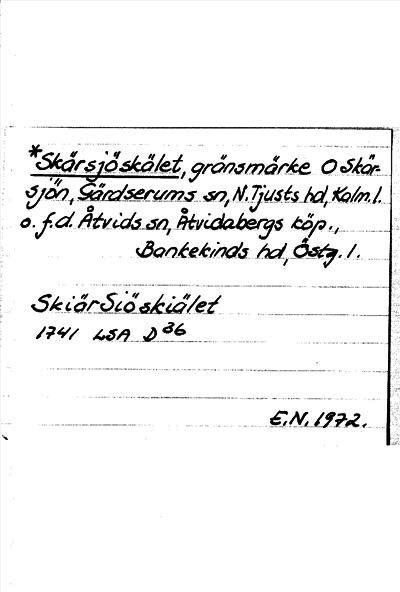 *Skärsjöskälet, gränsmärke O Skär-
sjön, Gärdserums sn, N.Tjusts hd, Kalm.l.
o. f.d. Åtvids sn, Åtvidabergs köp.,
Bankekinds hd, Östg. l.
SkiärSiöskiälet
1741 LSA D36
E.N. 1972.